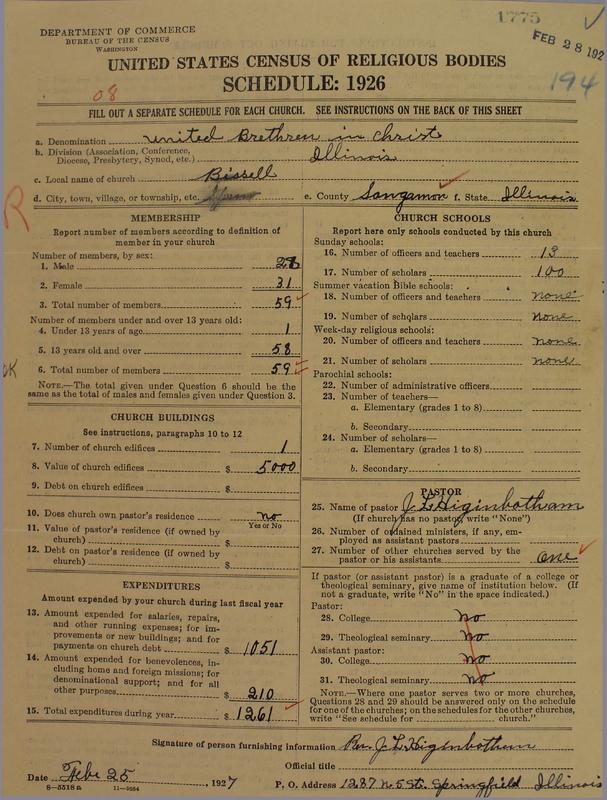 1775
FEB 28 192
194
DEPARTMENT OF COMMERCE
BUREAU OF THE CENSUS
WASHINGTON
UNITED STATES CENSUS OF RELIGIOUS BODIES
SCHEDULE: 1926
08
FILL OUT A SEPARATE SCHEDULE FOR EACH CHURCH. SEE INSTRUCTIONS ON THE BACK OF THIS SHEET
a. Denomination United Brethren in Christ
b. Division (Association, Conference, Diocese, Presbytery, Synod, etc.) Illinois
c. Local name of church Bissell
d. City, town, village, or township, etc. e. County Sangamon f. State Illinois
R
MEMBERSHIP
Report number of members according to definition of
member in your church
Number of members, by sex:
1. Male 28
2. Female 31
3. Total number of members 59
Number of members under and over 13 years old:
4. Under 13 years of age 1
5. 13 years old and over 58
OK
6. Total number of members 59
NOTE.—The total given under Question 6 should be
the same as the total of males and females given under Question 3.
CHURCH BUILDINGS
See instructions, paragraphs 10 to 12
7. Number of church edifices 1
8. Value of church edifices $ 5000
9. Debt on church edifices $
10. Does church own pastor's residence No
Yes or No
11. Value of pastor's residence (if owned by
church) $
12. Debt on pastor's residence (if owned by
church) $
EXPENDITURES
Amount expended by your church during last fiscal year
13. Amount expended for salaries, repairs,
and other running expenses; for im-
provements or new buildings; and for
payments on church debt $ 1051
14. Amount expended for benevolences, in-
cluding home and foreign missions; for
denominational support; and for all
other purposes $ 210
15. Total expenditures during year $ 1261
CHURCH SCHOOLS
Report here only schools conducted by this church
Sunday schools:
16. Number of officers and teachers 13
17. Number of scholars 100
Summer vacation Bible schools:
18. Number of officers and teachers none
19. Number of scholars none
Week-day religious schools:
20. Number of officers and teachers none
21. Number of scholars none
Parochial schools:
22. Number of administrative officers
23. Number of teachers—
a. Elementary (grades 1 to 8)
b. Secondary
24. Number of scholars—
a. Elementary (grades 1 to 8)
b. Secondary
PASTOR
25. Name of pastor J. L. Higinbotham
(If church has no pastor, write "None")
26. Number of ordained ministers, if any, em-
ployed as assistant pastors
27. Number of other churches served by the
pastor or his assistants One
If pastor (or assistant pastor) is a graduate of a college or
theological seminary, give name of institution below. (If
not a graduate, write "No" in the space indicated.)
Pastor:
28. College No
29. Theological seminary No
Assistant pastor:
30. College No
31. Theological seminary No
NOTE.—Where one pastor serves two or more churches,
Questions 28 and 29 should be answered only on the schedule
for one of the churches; on the schedules for the other churches,
write "See schedule for church."
Signature of person furnishing information Rev. J. L. Higinbotham
Official title
Date Feb 25, 1927 P. O. Address 1237 N. 5 St. Springfield Illinois
8—5518a 11—9554